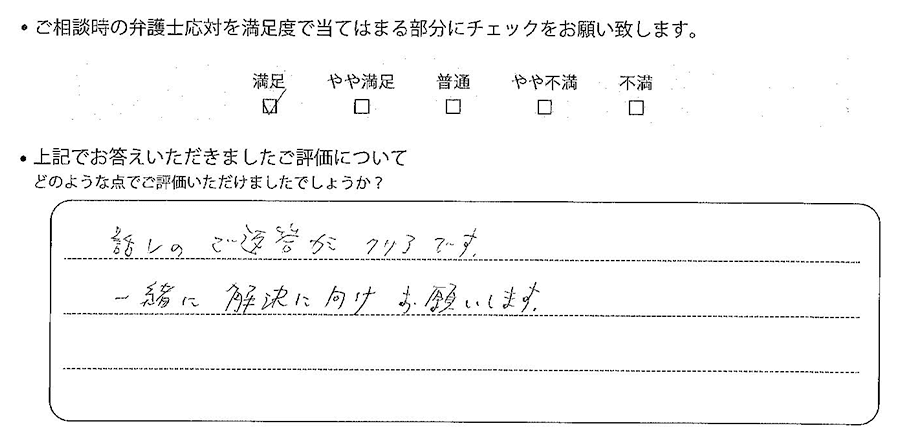 ・ご相談時の弁護士応対を満足度で当てはまる部分にチェックをお願い致します。
満足 やや満足 普通 やや不満 不満
☑ □ □ □ □
・上記でお答えいただきましたご評価について
どのような点でご評価いただけましたでしょうか？
話しの ご返答が クリアです。
一緒に 解決に向け お願いします。